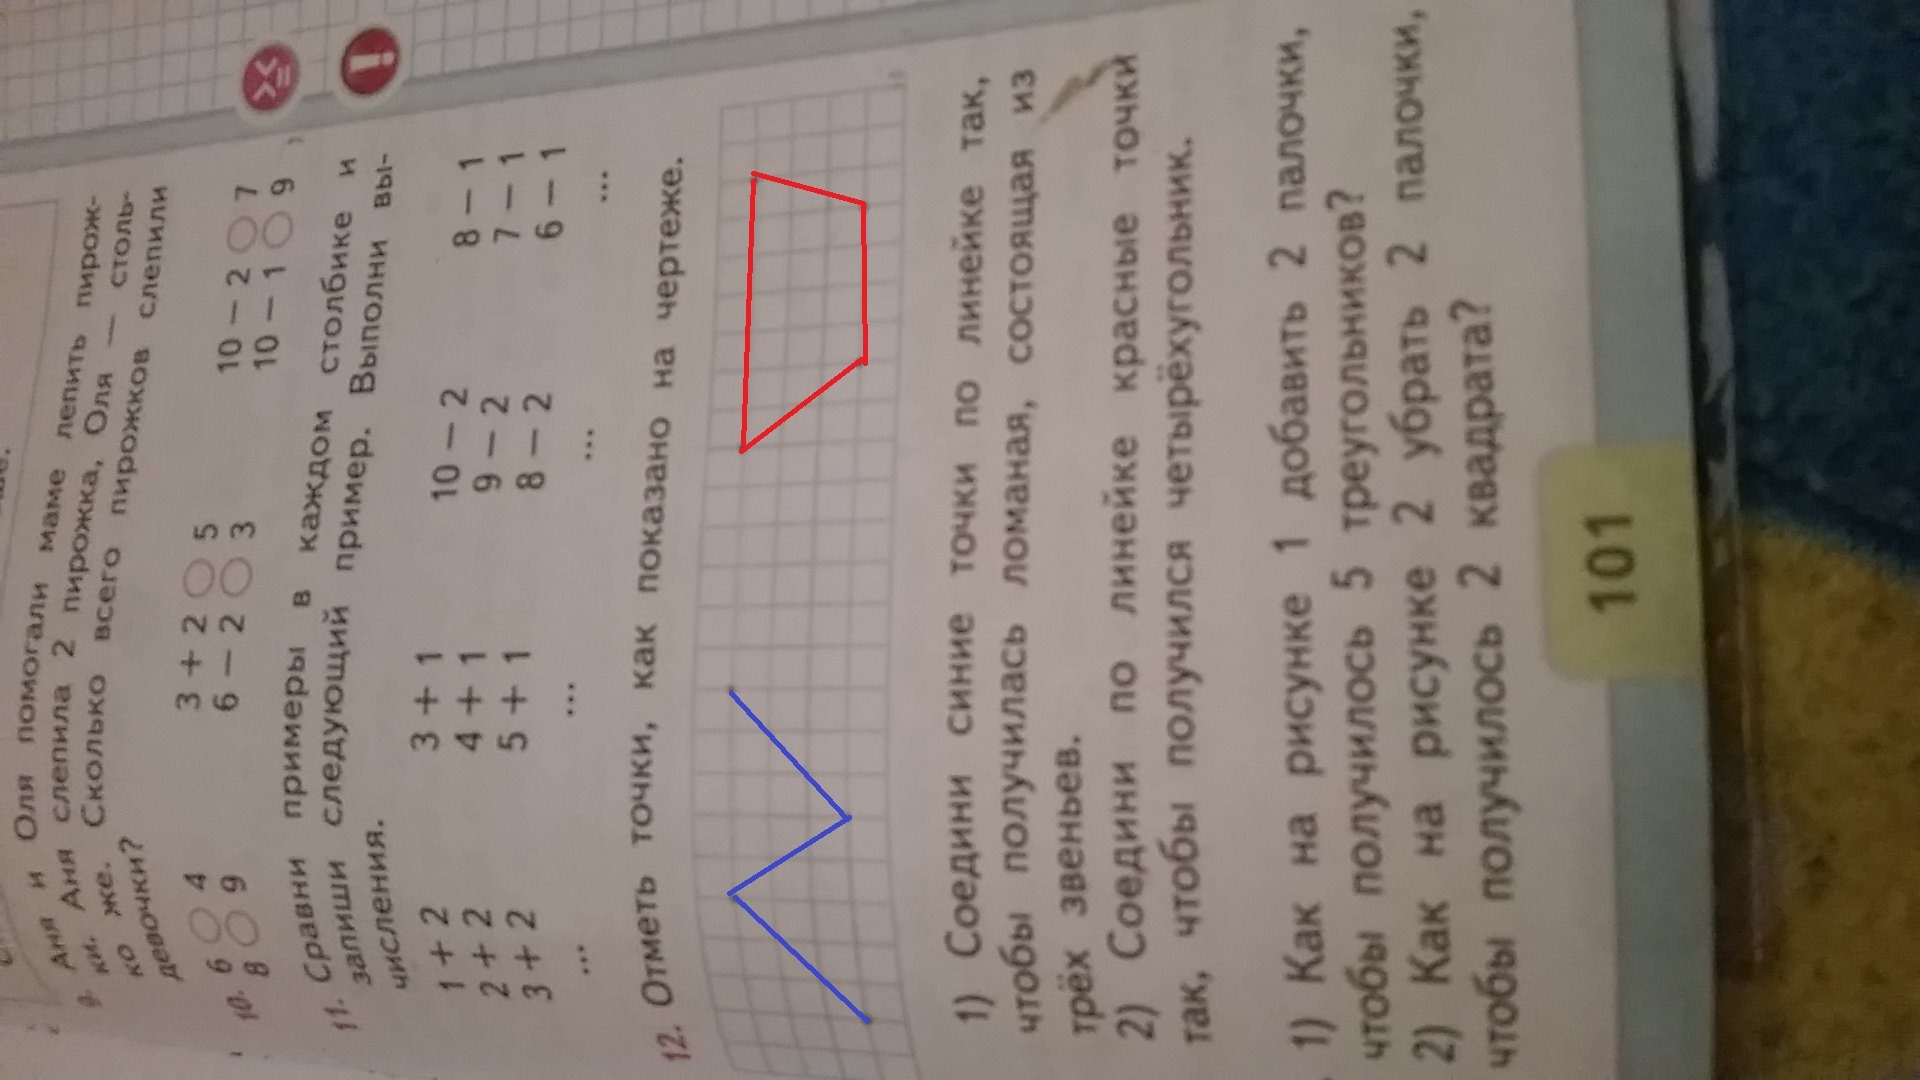 9. Аня и Оля помогали маме лепить пирож-
ки. Аня слепила 2 пирожка, Оля — столь-
ко же. Сколько всего пирожков слепили
девочки?
10. 6 ○ 4 3 + 2 ○ 5 10 − 2 ○ 7
8 ○ 9 6 − 2 ○ 3 10 − 1 ○ 9
11. Сравни примеры в каждом столбике и
запиши следующий пример. Выполни вы-
числения.
1 + 2 3 + 1 10 − 2 8 − 1
2 + 2 4 + 1 9 − 2 7 − 1
3 + 2 5 + 1 8 − 2 6 − 1
... ... ... ...
12. Отметь точки, как показано на чертеже.
1) Соедини синие точки по линейке так,
чтобы получилась ломаная, состоящая из
трёх звеньев.
2) Соедини по линейке красные точки
так, чтобы получился четырёхугольник.
1) Как на рисунке 1 добавить 2 палочки,
чтобы получилось 5 треугольников?
2) Как на рисунке 2 убрать 2 палочки,
чтобы получилось 2 квадрата?
101
>=<
!